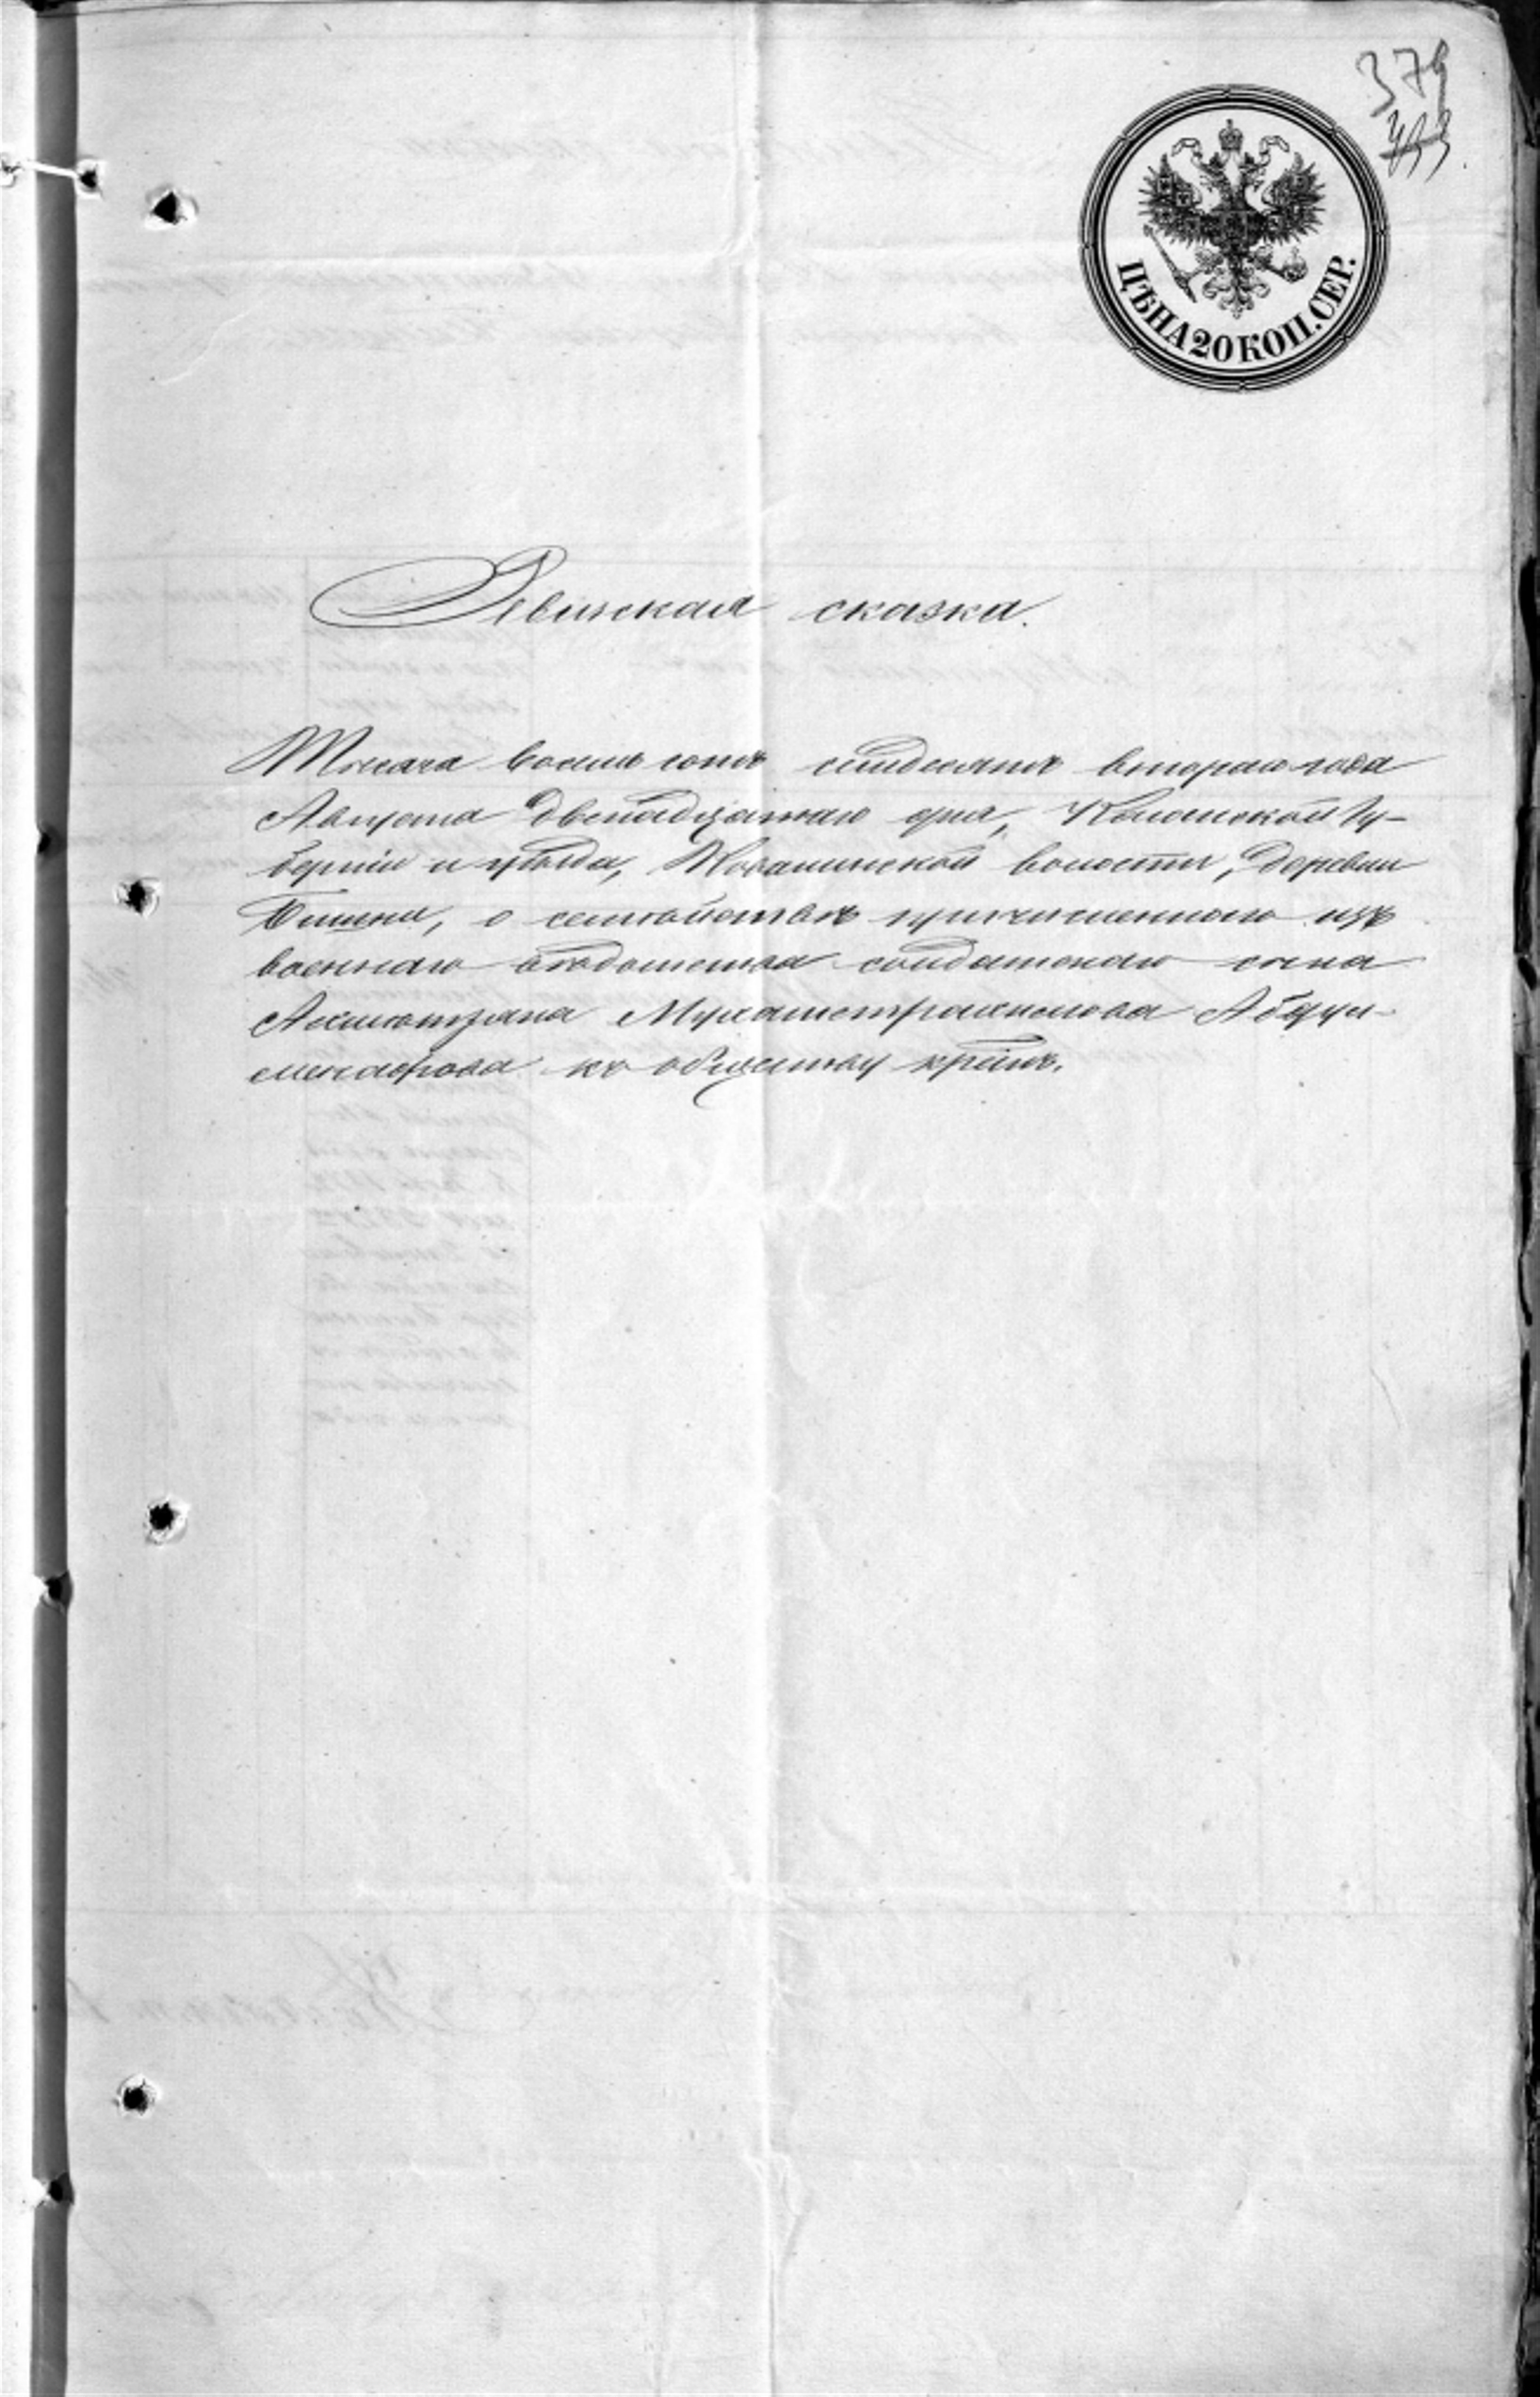 379
ЦѢНА 20 КОП. СЕР.
Ревизская сказка.
Тысяча восемь сотъ семдесятъ втораго года
Августа двенадцатаго дня, Казанской Гу-
берніи и уѣзда, волости, деревни
о семействѣ причисленнаго изъ
военнаго вѣдомства солдатскаго сына
Ахметзяна Мухаметрахимова Абдул-
менафова къ обществу крѣнъ.